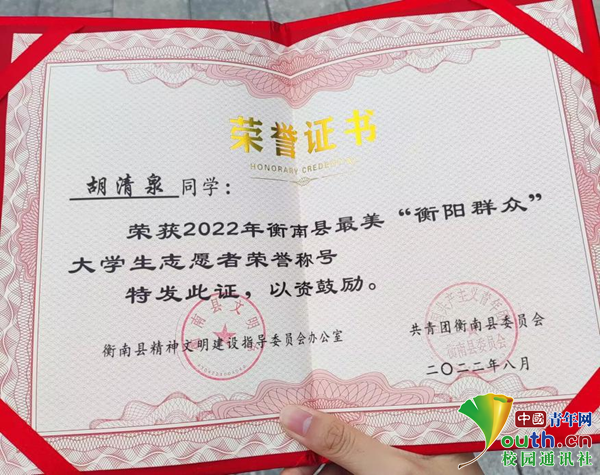 荣誉证书
HONORARY CREDENTIAL
胡清泉同学：
荣获2022年衡南县最美“衡阳群众”
大学生志愿者荣誉称号
特发此证，以资鼓励。
衡南县精神文明建设指导委员会办公室
共青团衡南县委员会
二〇二二年八月
中國青年网
youth.cn
校园通讯社